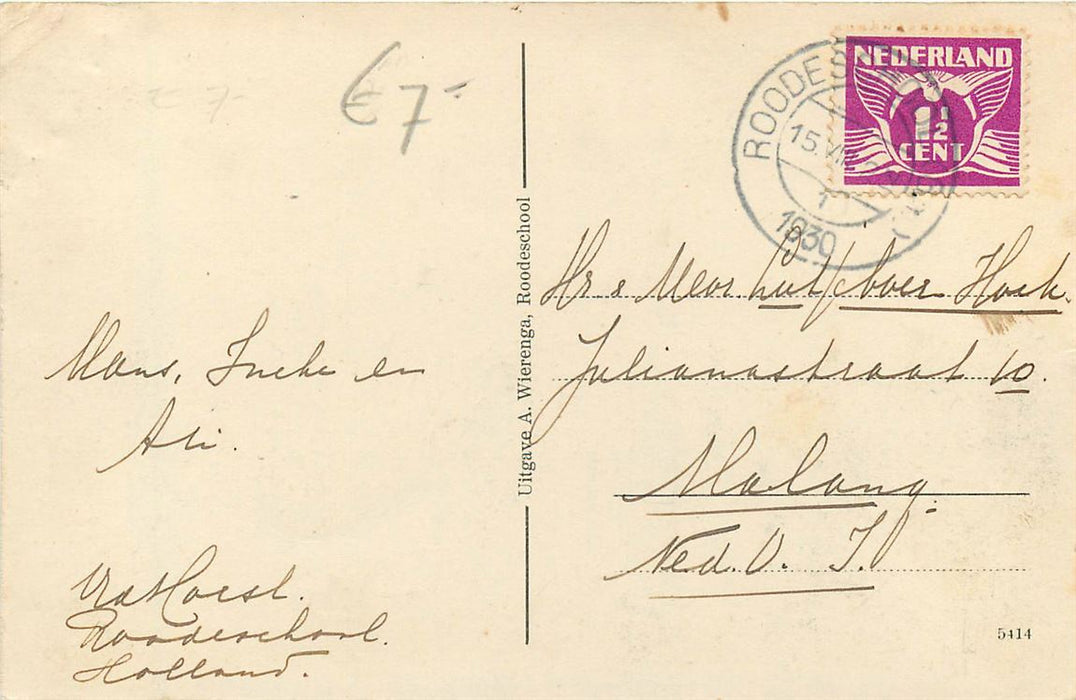 € 7-
Mans, Ineke en
Ali.
Horst.
Roodeschool.
Holland.
Uitgave A. Wierenga, Roodeschool
ROODES
15.VIII
1930
NEDERLAND
1½
CENT
Hr. & Mevr. Hoek.
Julianastraat 10.
Malang.
Ned. O. I.
5414